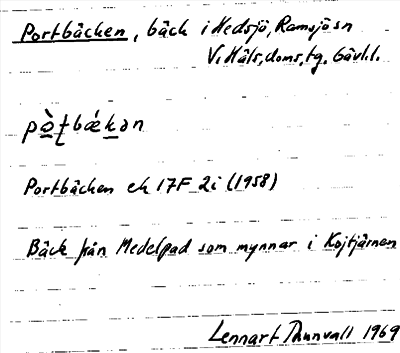 Portbäcken, bäck i Hedsjö, Ramsjö sn
V. Häls. doms. tg. Gävl. l.
pò̱ṭbǽḵən
Portbäcken ek 17F 2i (1958)
Bäck från Medelpad som mynnar i Kojtjärnen
Lennart Thunvall 1969